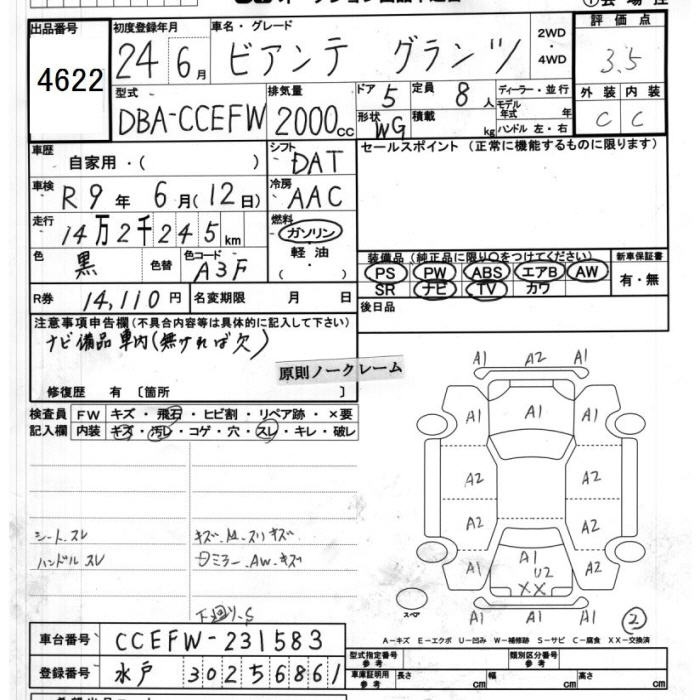 出品番号 4622
初度登録年月 24 6月
車名・グレード ビアンテ グランツ
2WD ・ 4WD
評価点 3.5
外装 内装
C C
型式 DBA-CCEFW
排気量 2000cc
ドア 5 定員 8人
形状 WG 積載 kg
ディーラー・並行
モデル年式 年
ハンドル 左・右
車歴 自家用・( )
シフト DAT
セールスポイント (正常に機能するものに限ります)
車検 R9年 6月(12日)
冷房 AAC
走行 14万2千245km
燃料 ガソリン
軽油
・( )
色 黒 色替 色コード A3F
装備品(純正品に限り○をつけてください) 新車保証書
PS PW ABS エアB AW 有・無
SR ナビ TV カワ
R券 14,110円 名変期限 月 日
後日品
注意事項申告欄(不具合内容等は具体的に記入して下さい)
ナビ備品車内(無ければ欠)
原則ノークレーム
修復歴 有 〔箇所 〕
検査員 FW キズ・飛石・ヒビ割・リペア跡・×要
記入欄 内装 キズ・汚レ・コゲ・穴・スレ・キレ・破レ
A1 A2 A1
A1 A1 A1
A2 A2
A2 A2
A1 A1 A1
U2
XX
シート.スレ キズ.M.スリキズ
ハンドルスレ ミラー.AW.キズ
下廻り.S
スペア
2
A-キズ E-エクボ U-凹み W-補修跡 S-サビ C-腐食 XX-交換済
車台番号 CCEFW-231583
登録番号 水戸 302 5 6861
型式指定番号 参考 類別区分番号 参考
車庫証明用 参考 長さ cm 幅 cm 高さ cm